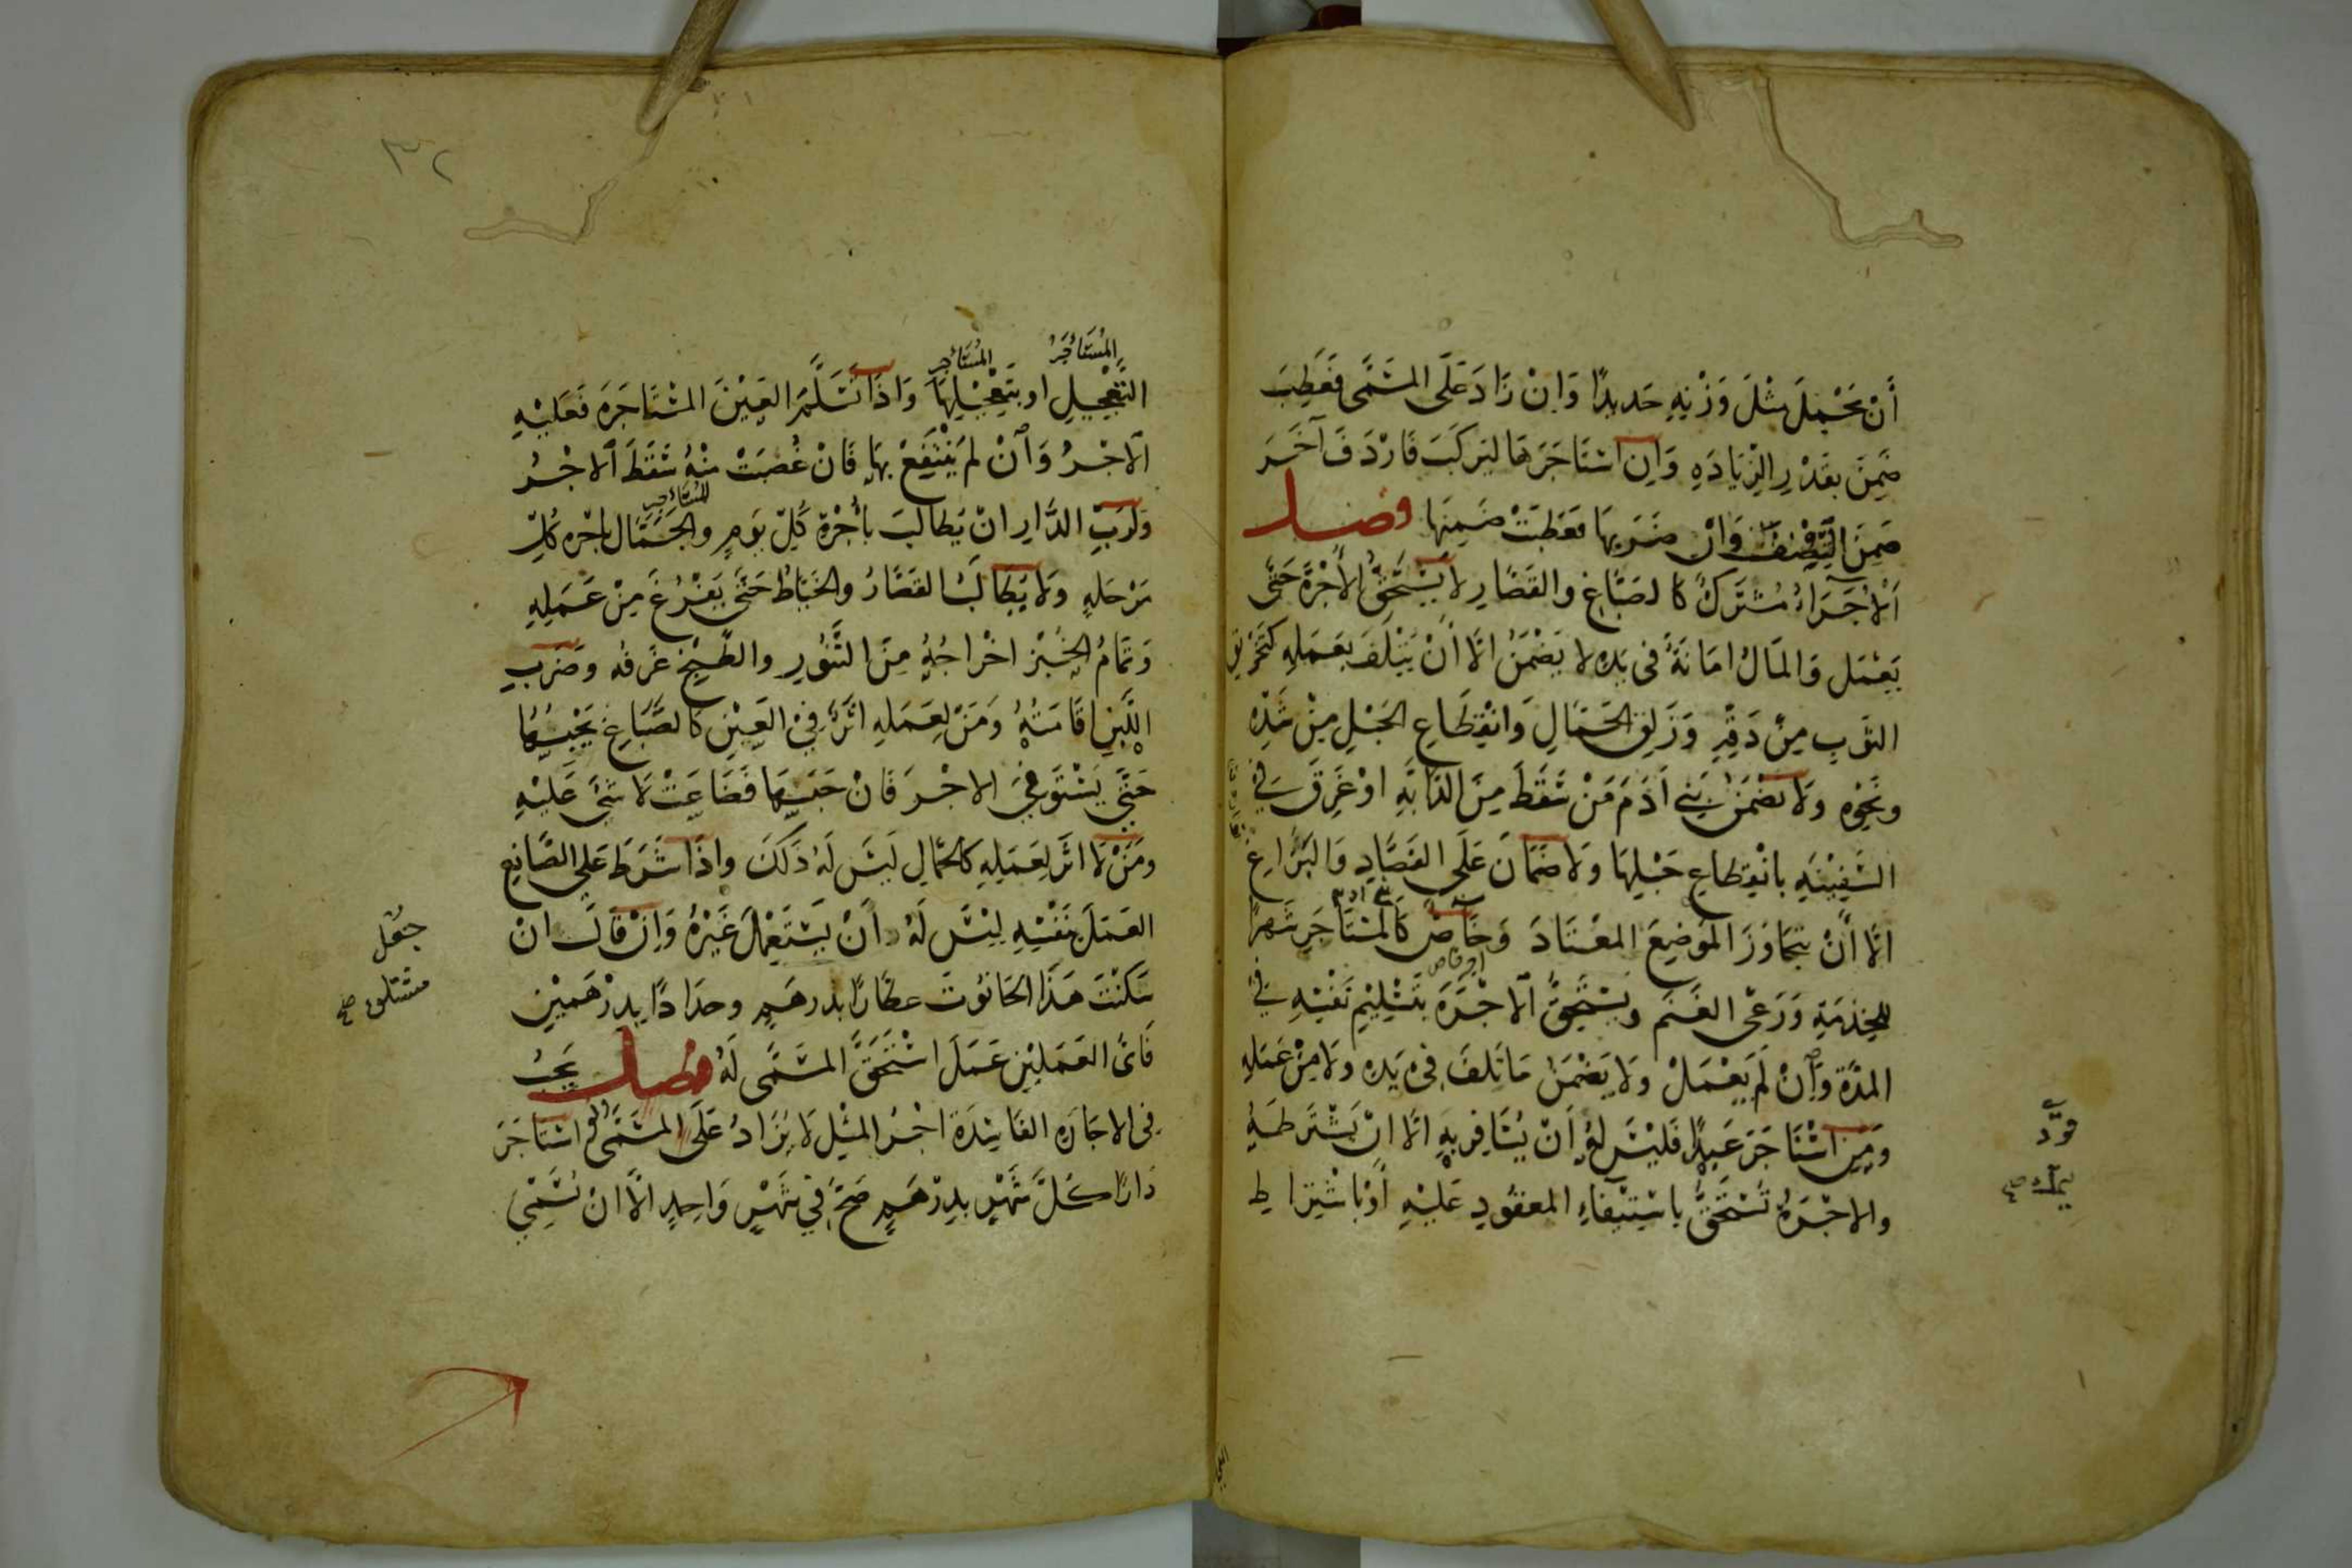 أَنْ يَحْمِلَ مِثْلَ وَزْنِهِ حَديدًا وَاِنْ زَادَ عَلَى المُسَمَّى فَعَطِبَ
ضَمِنَ بِقَدْرِ الزِّيَادَةِ وَاِنِ اسْتَاجَرَهَا لِيَركَبَ فَارْدَفَ آخَرَ
ضَمِنَ النِّصْفَ وَانْ ضَرَبَهَا فَعَطِبَتْ ضَمِنَهَا فصل
اَلْاُجَرَاءُ مُشْتَرَكٌ كالصَبَّاغِ والقَصَّارِ لَا يَسْتَحِقُّ الأُجْرَةَ حَتَّى
يَعْمَلَ وَالمَالُ امَانَةٌ فى يَدِهِ لا يَضْمَنُ اِلَّا أَنْ يَتْلَفَ بِعَمَلِهِ كتَخْرِيقِ
الثَّوبِ مِنْ دَقِّهِ وَزَلَقِ الحَمَّالِ وَانْقِطَاعِ الحَبْلِ مِنْ شَدِّهِ
ونَحْوِهِ ولَا يَضْمَنُ بَنِي آدَمَ مَنْ سَقَطَ مِنَ الدَّابَّةِ اوْ غَرِقَ فِي
السَّفِينَةِ بانْقِطَاعِ حَبْلِهَا ولَا ضَمَانَ عَلَى الفَصَّادِ وَالبَزَّاغِ
اِلَّا أَنْ يَتَجَاوَزَ المَوضِعَ المُعْتَادَ وَخَاصٌّ كَالمُسْتَاجَرِ شَهرًا
للخِدْمَةِ وَرَعْىِ الغَنَم ويَسْتَحِقُّ اَلاُجْرَةَ بِتَسْلِيْمِ نَفْسِهِ فى
المدَّةِ وَاِنْ لَمْ يَعْمَلْ ولَا يَضْمَنُ مَا تَلِفَ فى يَدِهِ ولَا مِنْ عَمَلِهِ
وَمَنِ اسْتَاجَرَ عَبدًا فَليْسَ لهُ اَنْ يُسَافِرَ بِهِ اِلَّا اَنْ يَشْتَرِطَهُ
والاُجْرَةُ تُسْتَحَقُّ باسْتِيْفَاءِ المعقُودِ عَلَيْهِ أَوْ باشْتِرَاطِ
المُسْتَأجَرُ
المُسْتَأجِر
التَّعْجِيلِ او بِتَعْجِيْلِهَا وَاذَا تَسَلَّمَ العَيْنَ المُسْتَاجَرَةَ فَعَلَيْهِ
اَلاجْرُ وَاِنْ لم يَنْتَفِعْ بِهَا فَانْ غُصِبَتْ مِنْهُ سَقَطَ اَلاجْرُ
ولرَبِّ الدَّارِ انْ يُطَالِبَ بأُجْرَةِ كُلِّ يَومٍ والجَمَّالُ باُجْرةِ كُلِّ
مَرْحَلةٍ ولَا يُطَالِبُ القَصَّارُ والخَيَّاطُ حَتَّى يَفْرُغَ مِنْ عَمَلِهِ
وَتَمَامُ الخُبْزِ اخْرَاجُهُ مِنَ التَّنُورِ والطَّبِيْخِ غَرفُه وَضَربِ
اللَّبِنِ اقَامَتُهُ وَمَنْ لِعَمَلِهِ اثَرٌ فِي العَيْنِ كَالصَّبَّاغِ يَحْبِسُهَا
حَتَّى يَسْتَوفِيَ الاجْرَ فَانْ حَبَسَهَا فَضَاعَتْ لَا شَئَ عَلَيْهِ
ومَنْ لَا اثَرَ لِعَمَلِهِ كَالحَمَّالِ لَيْسَ لَهُ ذَلكَ واذَا شَرَطَ عَلى الصَّانِعِ
العَمَلَ بِنَفْسِهِ لَيْسَ لَهُ أَنْ يَسْتَعْمِلَ غَيْرَهُ وَاِنْ قَالَ انْ
سَكَنْتَ هَذَا الحَانُوتَ عَطَّارًا بدرهَمٍ وحدَادًا بِدرْهَمَيْنِ
فَاىَّ العَمَلَيْنِ عَمَلَ اسْتَحَقَّ المُسَمَّى لَهُ فصل يَجِبُ
فى الاجَارَةِ الفَاسِدَةِ اجْرُ المِثْلِ لَا يُزَادُ عَلَى المُسَمَّى اسْتَاجَرَ
دَارًا كُلَّ شَهْرٍ بِدِرْهَمٍ صَحَّ فِي شَهْرٍ وَاحِدٍ اِلَّا انْ يُسَمِّيَ
٣٢